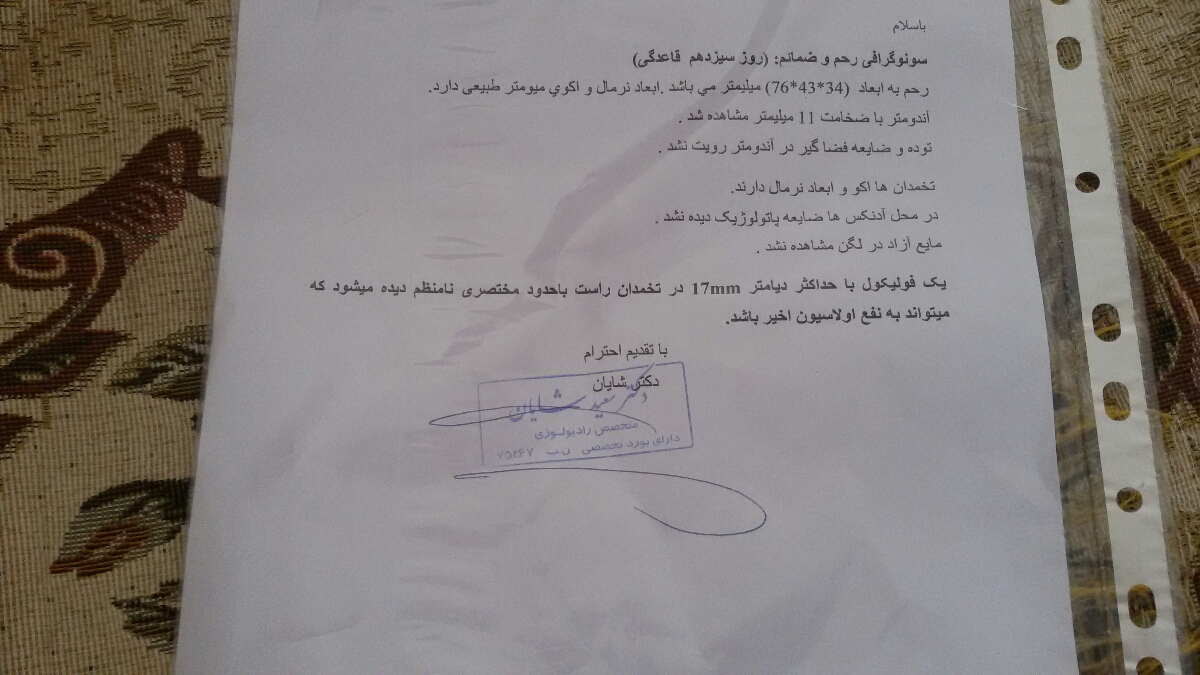 باسلام
سونوگرافی رحم و ضمائم: (روز سیزدهم قاعدگی)
رحم به ابعاد (34*43*76) میلیمتر مي باشد .ابعاد نرمال و اکوي میومتر طبیعی دارد.
آندومتر با ضخامت 11 میلیمتر مشاهده شد .
توده و ضایعه فضا گیر در آندومتر رویت نشد .
تخمدان ها اکو و ابعاد نرمال دارند.
در محل آدنکس ها ضایعه پاتولوژیک دیده نشد .
مایع آزاد در لگن مشاهده نشد .
یک فولیکول با حداکثر دیامتر 17mm در تخمدان راست باحدود مختصری نامنظم دیده میشود که
میتواند به نفع اولاسیون اخیر باشد.
با تقدیم احترام
دکتر شایان
دکتر سعید شایان
متخصص رادیولوژی
دارای بورد تخصصی ن.پ ۷۵۴۶۷